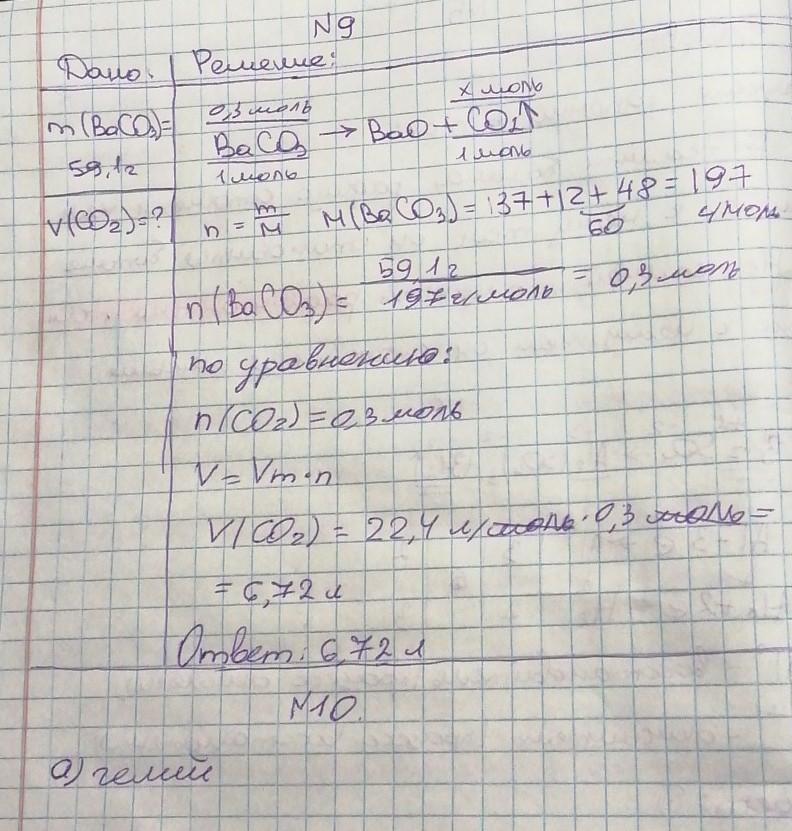 N9
Дано: Решение:
m(BaCO3)=
59,1г
V(CO2)=?
0,3 моль x моль
BaCO3 → BaO + CO2↑
1 моль 1 моль
n = m/M M(BaCO3) = 137+12+48 = 197
60 г/моль
n(BaCO3) = 59,1г / 197 г/моль = 0,3 моль
по уравнению:
n(CO2) = 0,3 моль
V = Vm·n
V(CO2) = 22,4 л/моль · 0,3 моль =
= 6,72 л
Ответ: 6,72 л
N10.
а) гелий